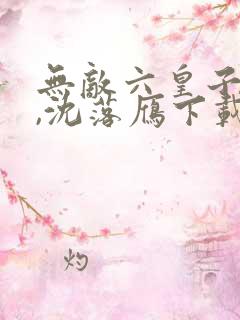 無敵六皇子
,沈落鴈下載
灼